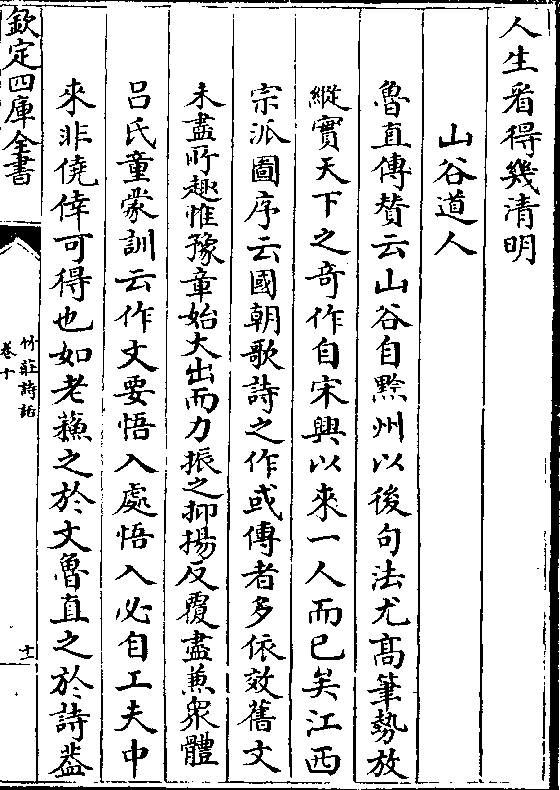 人生看得幾清明
山谷道人
魯直傳贊云山谷自黔州以後句法尤髙筆勢放
縱實天下之奇作自宋興以來一人而已矣江西
宗派圖序云國朝歌詩之作或傳者多依效舊文
未盡所趣惟豫章始大出而力振之抑揚反覆盡兼衆體
吕氏童蒙訓云作文要悟入處悟入必自工夫中
來非僥倖可得也如老蘓之於文魯直之於詩葢
欽定四庫全書
竹莊詩話
卷十
十一